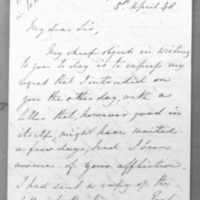 5th April 48
My dear Sir,
My chief object in writing
to you to day is to express my
regret that I intruded on
you the other day, with a
letter that, however good in
itself, might have waited
a few days, had I been
aware of your affliction.
I had sent a copy of the